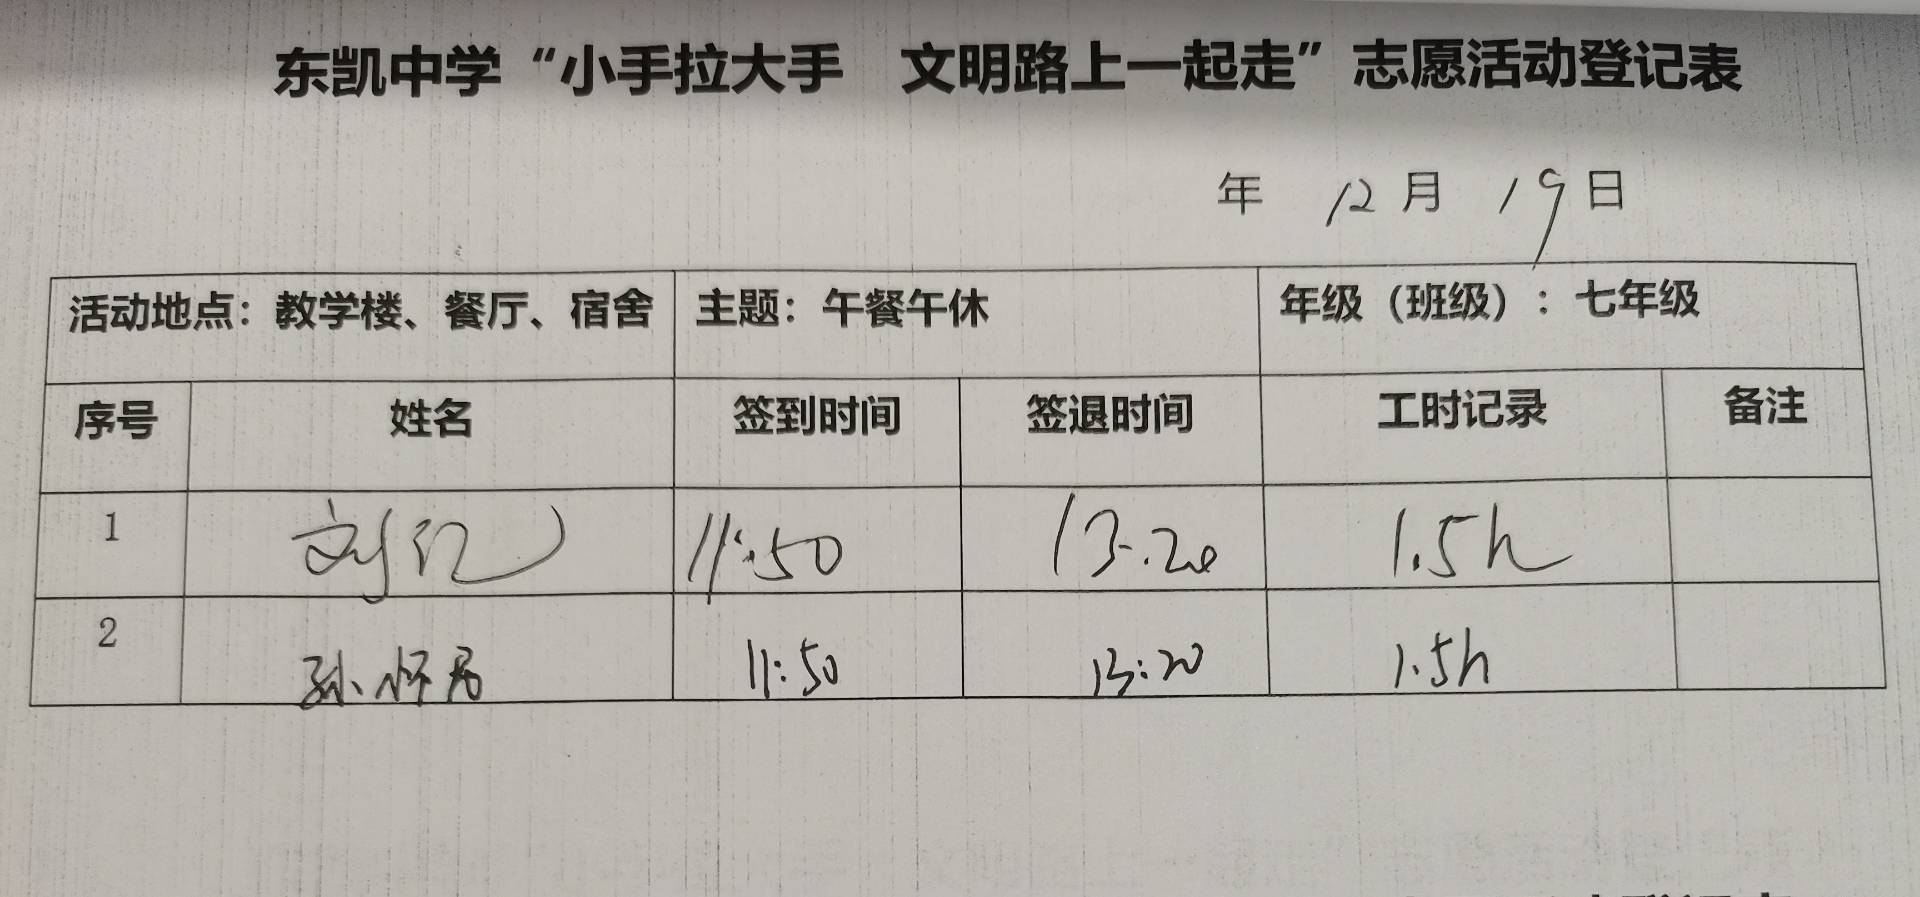 东凯中学“小手拉大手 文明路上一起走”志愿活动登记表
年 12 月 19 日
活动地点：教学楼、餐厅、宿舍 主题：午餐午休 年级（班级）：七年级
序号 姓名 签到时间 签退时间 工时记录 备注
1 刘红 11:50 13:20 1.5h
2 孙 11:50 13:20 1.5h